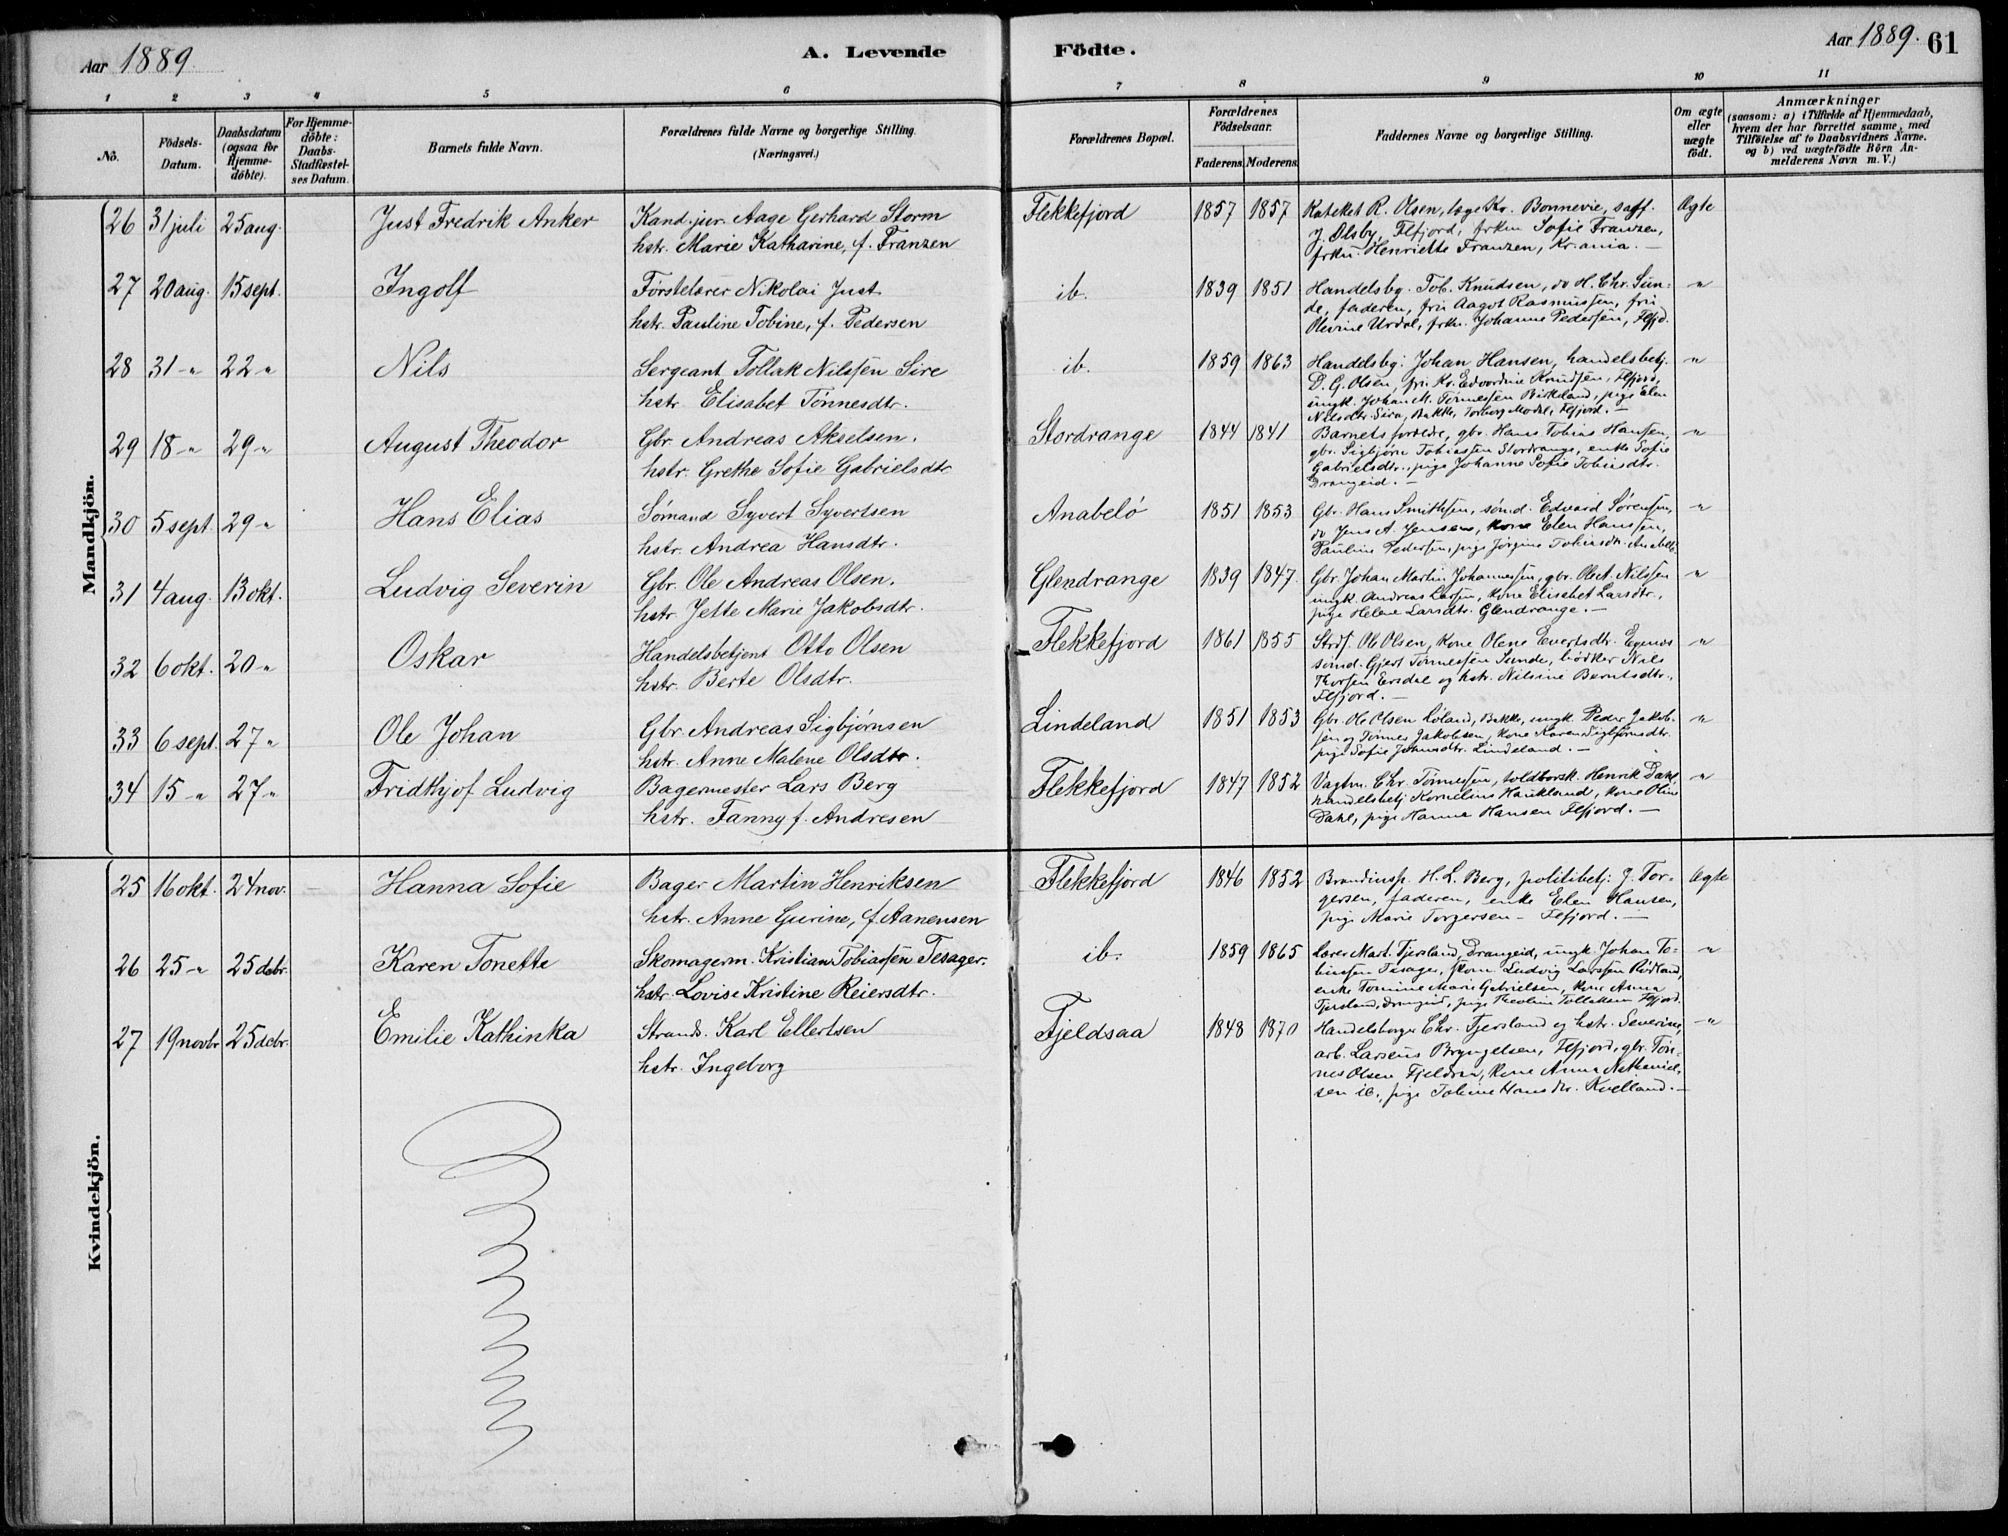 Aar 1889.
A. Levende
Födte.
Aar 1889.
61
1 2 3 4 5 6 7 8 9 10 11
No.
Födsels-Datum.
Daabsdatum (ogsaa for Hjemme-döbte).
For Hjemme-döbte: Daabs-Stadfæstel-ses Datum.
Barnets fulde Navn.
Forældrenes fulde Navne og borgerlige Stilling.
(Næringsvei.)
Forældrenes Bopæl.
Forældrenes Födselsaar.
Faderens. Moderens.
Faddernes Navne og borgerlige Stilling.
Om ægte eller uægte födt.
Anmærkninger
(saasom: a) i Tilfælde af Hjemmedaab,
hvem der har forrettet samme, med
Tilföielse af to Daabsvidners Navne.
og b) ved uægtefödte Börn An-
melderens Navn m. V.)
Mandkjön.
26 31 juli 25 aug. Just Fredrik Anker
Kand. jur. Aage Gerhard Storm
hstr. Marie Katharine, f. Franzen
Flekkefjord 1857 1857
Kateket R. Olsen, læge Kr. Bonnevie, sagf.
J. Olsby, Flfjord, frkn Sofie Franzen,
frkn. Henriette Franzen, Kr.ania. —
Ægte
27 20 aug. 15 sept. Ingolf
Førstelærer Nikolai Just
hstr. Pauline Tobine, f. Pedersen
ib. 1839 1851
Handelsbg. Tob. Knudsen, do H. Chr. Sun-
de, faderen, fru Aagot Rasmussen, fru
Olevine Urdal, frkn. Johanne Pedersen, Flfjd.
"
28 31 - " 22 " Nils
Sergeant Tollak Nilssen Sire
hstr. Elisabet Tönnesdtr.
ib. 1859 1863
Handelsbg. Johan Hansen, handelsbetj.
D. G. Olsen, fru Kr. Edvardine Knudsen, Flfjord,
ungk. Johan M. Tönnessen Birkeland, pige Elen
Nilsdtr. Sira, Bakke, Torborg Modal, Flfjord. —
"
29 18 - " 29 " August Theodor
Gbr. Andreas Akselsen.
hstr. Grethe Sofie Gabrielsdtr
Stordrange 1844 1841
Barnets forældre, gbr. Hans Tobias Hanssen,
gbr. Sigbjörn Tobiassen Stordrange, enke Sofie
Gabrielsdtr., pige Johanne Sofie Tobiasdtr.
Drangeid. —
"
30 5 sept. 29 " Hans Elias
Sömand Syvert Syvertsen
hstr. Andrea Hansdtr.
Anabelö 1851 1853
Gbr. Hans Smithsen, sömd. Edvard Sørensen,
do Jens A. Jensen, kone Elen Hanssen,
Pauline Pedersen, pige Jörgine Tobiasdtr. Anabelö.
"
31 4 aug. 13 okt. Ludvig Severin
Gbr. Ole Andreas Olsen.
hstr. Jette Marie Jakobsdtr.
Glendrange 1839 1847.
Gbr. Johan Martin Johannessen, gbr. Ole A. Nilssen
ungk. Andreas Larsen, kone Elisabet Larsdtr.,
pige Helene Larsdtr. Glendrange. —
"
32 6 okt. 20 " Oskar
Handelsbetjent Otto Olsen
hstr. Berte Olsdtr.
Flekkefjord 1861 1855
Strds. Ole Olsen, kone Olene Evertsdtr.
sömd. Gjert Tönnessen Sunde, bödker Nils
Thorsen Ersdal og hstr. Nilsine Berntsdtr.,
Flfjord. —
"
33 6 sept. 27 " Ole Johan
Gbr. Andreas Sigbjørnsen
hstr. Anne Malene Olsdtr.
Lindeland 1851 1853
Gbr. Ole Olsen Löland, Bakke, ungk. Peder Jakob-
sen og Tönnes Jakobsen, kone Karen Sigbjørnsdtr.
pige Sofie Johansdtr. Lindeland. —
"
34 15 - " 27 " Fridthjof Ludvig
Bagermester Lars Berg
hstr. Fanny f. Andresen
Flekkefjord 1847 1852
Vagtm. Chr. Tönnessen, toldborsk. Henrik Dahl,
handelsbetj Kornelius Haukland, kone Oline
Dahl, pige Hanna Hansen Flfjord. —
"
Kvindekjön.
25 16 okt. 24 nov. Hanna Sofie
Bager Martin Henriksen
hstr. Anne Gurine, f. Aanensen
Flekkefjord 1846 1852
Brandinsp. H. L. Berg, politibetj. J. Tor-
gersen, faderen, enke Elen Hansen,
pige Marie Torgersen - Flfjord. —
Ægte
26 25 - " 25 decbr. Karen Tonette
Skomagerm. Kristian Tobiassen Tesager.
hstr. Lovise Kristine Reiersdtr.
ib. 1859 1865
Lærer Mart. Fjersland, Drangeid, ungk. Johan To-
biassen Tesager, skom. Ludvig Larssen Rödland,
enke Tomine Marie Gabrielsen, kone Anna
Fjersland, Drangeid, pige Theoline Tollaksen Flfjord.
"
27 19 novbr 25 decbr. Emilie Kathinka
Strands. Karl Ellertsen
hstr. Ingeborg
Fjeldsaa 1848 1870
Handelsborger Chr. Fjersland og hstr. Severine,
arb. Larseus Bryngelsen, Flfjord, gbr. Tön-
nes Olsen Fjeldsaa, kone Anna Nathaniel-
sen ib., pige Tobine Hansdtr. Kvelland. —
"